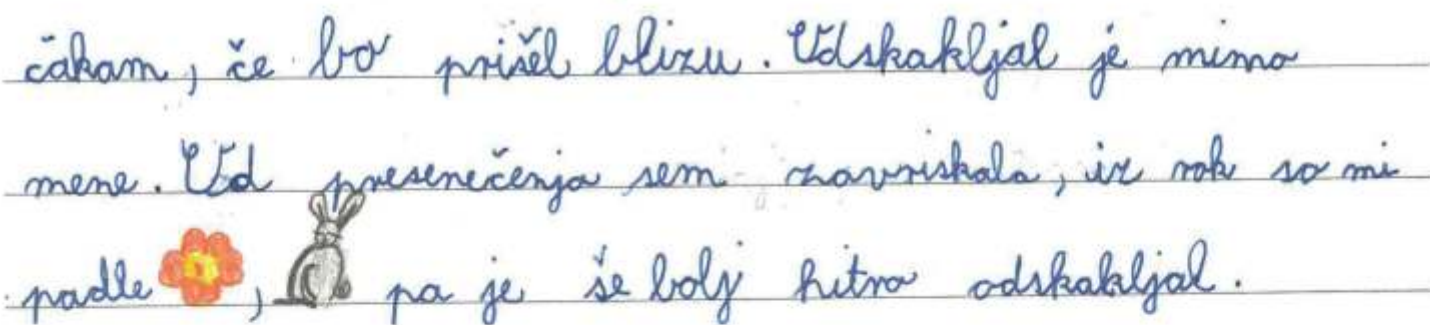 čakam, če bo prišel blizu. Odskakljal je mimo
mene. Od presenečenja sem zavriskala, iz rok so mi
padle , pa je še bolj hitro odskakljal.